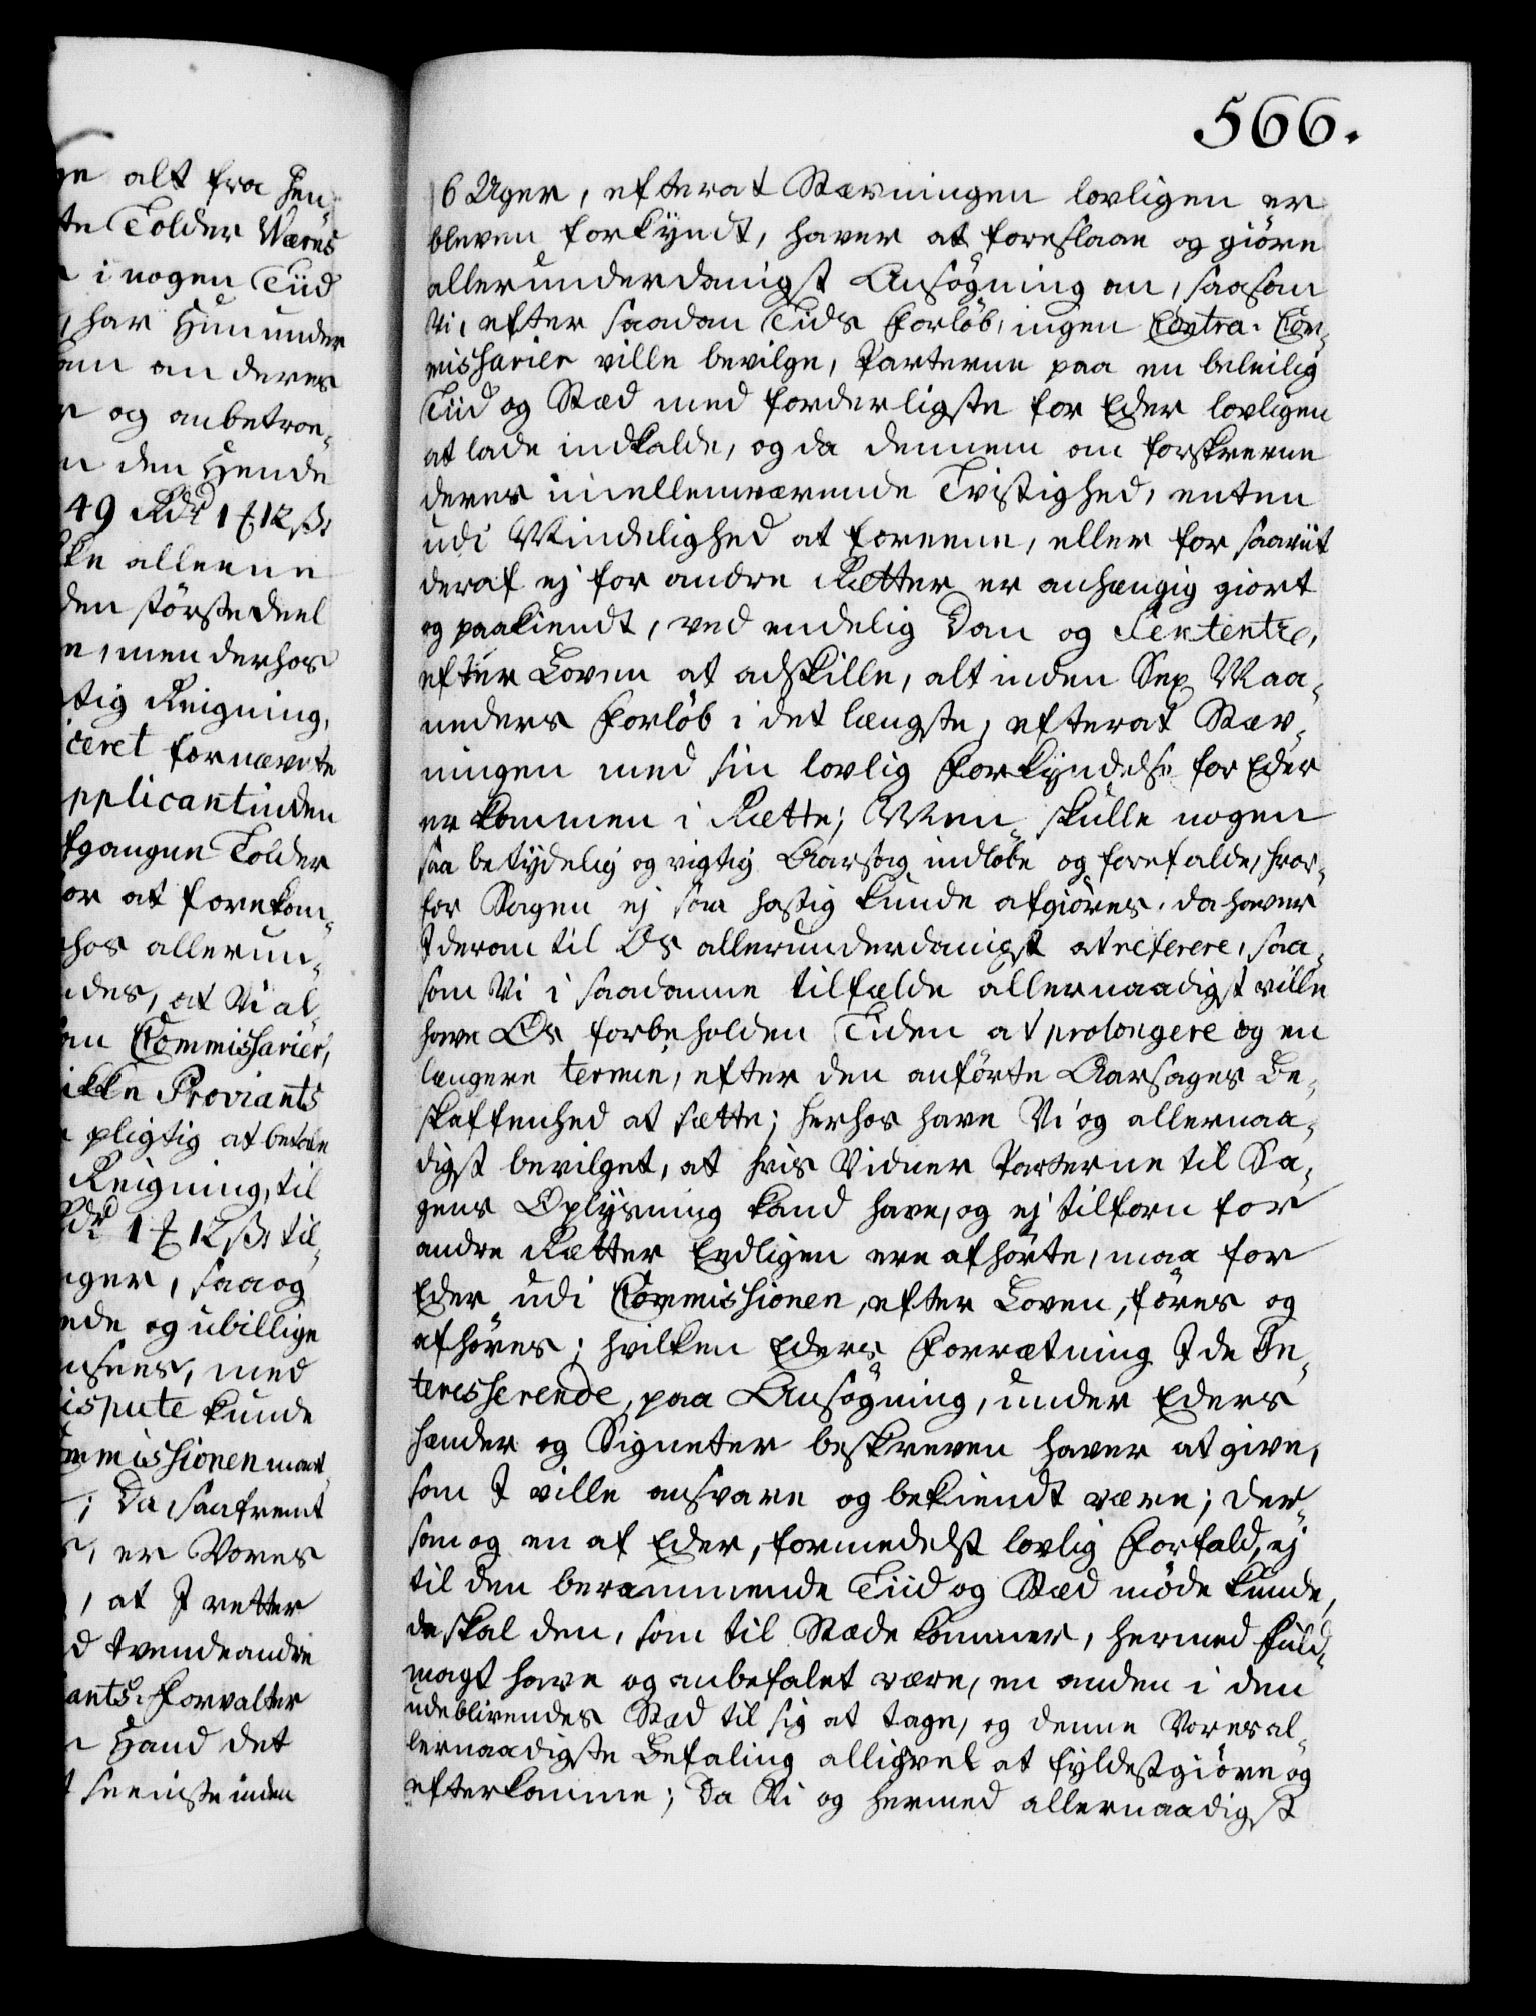 566.
ge alt fra Hen¬
te Tolder Wærns
i nogen Tiid
, har Hun under
om an deres
og anbetroe¬
den Hende
49 Rdr 1 ℔ 12 ß,
ke alleene
den störste deel
e, men derhos
tig Reigning,
iceret fornævnte
pplicantinden
fgangne Tolder
or at forekom¬
hos allerun¬
des, at Vi al¬
an Commissarier,
ikke Proviants
pligtig at betale
Reigning, til
Rdr 1 ℔ 12 ß, til¬
nger, saa og
ende og ubillige
nsees, med
ispute kunde
ommissionen maat
; Da saafremt
, er Vores
, at I retter
d tvende andre
ants-Forvalter
Hand det
seeniste inden
6 Uger, efterat Stævningen lovligen er
bleven forkyndt, haver at foreslaae og giöre
allerunderdanigst Ansögning om, saasom
Vi, efter saadan Tids Forlöb, ingen Contra-Com¬
missarier ville bevilge, Parterne paa en beleilig
Tiid og Stæd med forderligste for Eder lovligen
at lade indkalde, og da dennem om forskrevne
deres imellemværende Tvistighed, enten
udi Mindelighed at foreene, eller for saaviit
deraf ej for andre Rætter er anhængig giort
og paakiendt, ved endelig Dom og Sententze,
efter Loven at adskille, alt inden Sex Maa¬
neders Forlöb i det længste, efterat Stæv¬
ningen med sin lovlig Forkyndelse for Eder
er kommen i Rætte; Men skulle nogen
saa betydelig og vigtig Aarsag indlöbe og forefalde, hvor¬
for Sagen ej saa hastig kunde afgiöres, da haver
I derom til Os allerunderdanigst at referere, saa¬
som Vi i saadanne tilfælde allernaadigst ville
have Os forbeholden Tiden at prolongere og en
længere termin, efter den anförte Aarsages Be¬
skaffenhed at sætte; herhos have Vi og allernaa¬
digst bevilget, at hvis Vidner Parterne til Sa¬
gens Oplysning kand have, og ej tilforn for
andre Rætter Eedligen ere afhörte, maa for
Eder udi Commissionen, efter Loven, föres og
afhöres; hvilken Eders Forrætning I de In¬
teresserende, paa Ansögning, under Eders
hænder og Signeter beskreven haver at give,
som I ville ansvare og bekiendt være; Der¬
som og en af Eder, formedelst lovlig Forfald, ej
til den berammende Tiid og Stæd möde kunde,
da skal den, som til Stæde kommer, hermed Fuld¬
magt have og anbefalet være, en anden i den
udeblivendes Stæd til sig at tage, og denne Vores al¬
lernaadigste Befaling alligevel at fyldestgiöre og
efterkomme; Da Vi og hermed allernaadigst